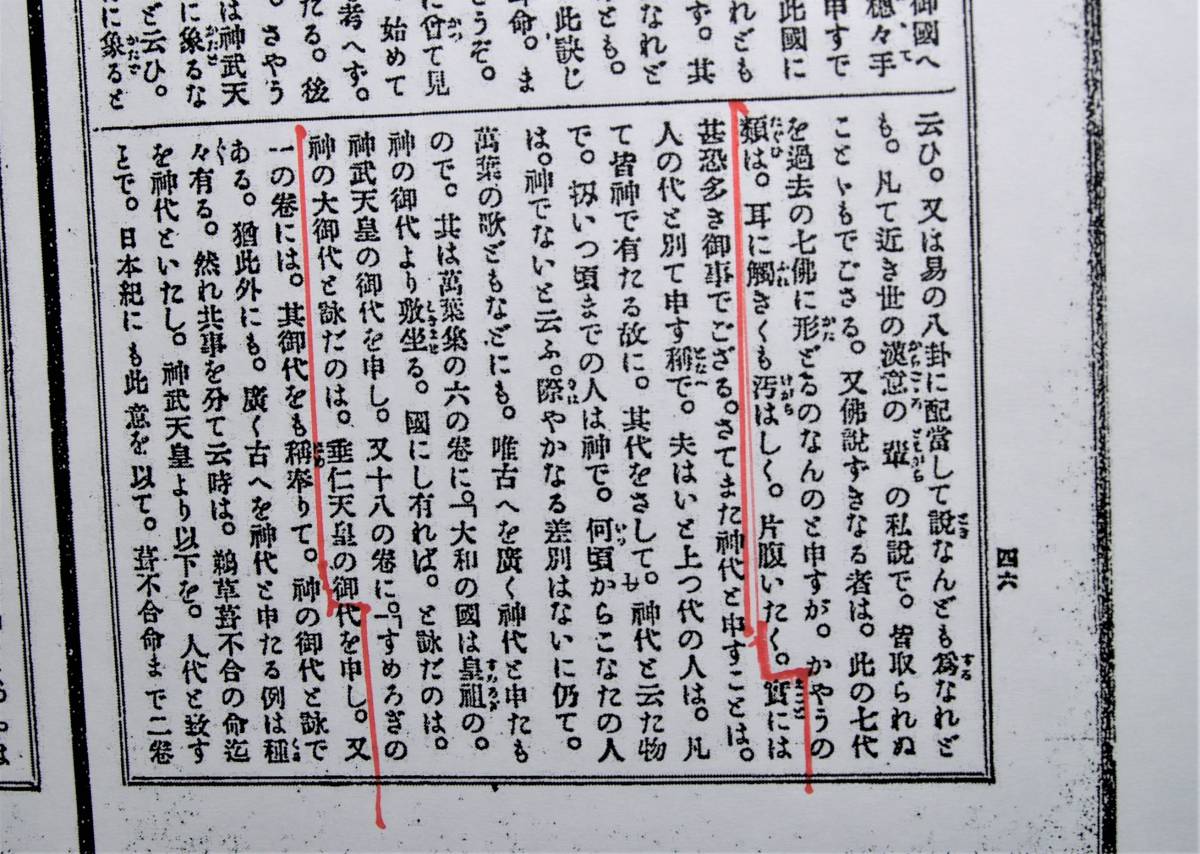 御國へ
穗々手
申すで
此國に
れども
す。其
なれど
とも。
此訣じ
命。ま
うぞ。
に曾て見
始めて
考へず。
たる。後
さやう
は神武天
に象るな
ど云ひ。
に象ると
云ひ。又は易の八卦に配當して説なんども爲なれど
も。凡て近き世の漢意の輩の私説で。皆取られぬ
ことゝもでござる。又佛説ずきなる者は。此の七代
を過去の七佛に形どるのなんのと申すが。かやうの
類は。耳に觸きくも汚はしく。片腹いたく。實には
甚恐多き御事でござる。さてまた神代と申すことは。
人の代と別て申す稱で。夫はいと上つ代の人は。凡
て皆神で有たる故に。其代をさして。神代と云た物
で。扨いつ頃までの人は神で。何頃からこなたの人
は。神でないと云ふ。際やかなる差別はないに仍て。
萬葉の歌どもなどにも。唯古へを廣く神代と申たも
ので。其は萬葉集の六の卷に。「大和の國は皇祖の。
神の御代より敷坐る。國にし有れば。と詠だのは。
神武天皇の御代を申し。又十八の卷に。「すめろぎの
神の大御代と詠だのは。垂仁天皇の御代を申し。又
一の卷には。其御代をも稱奉りて。神の御代と詠で
ある。猶此外にも。廣く古へを神代と申たる例は種
々有る。然れ共事を分て云時は。鵜草葺不合の命迄
を神代といたし。神武天皇より以下を。人代と致す
とで。日本紀にも此意を以て。葺不合命まで二卷
四六